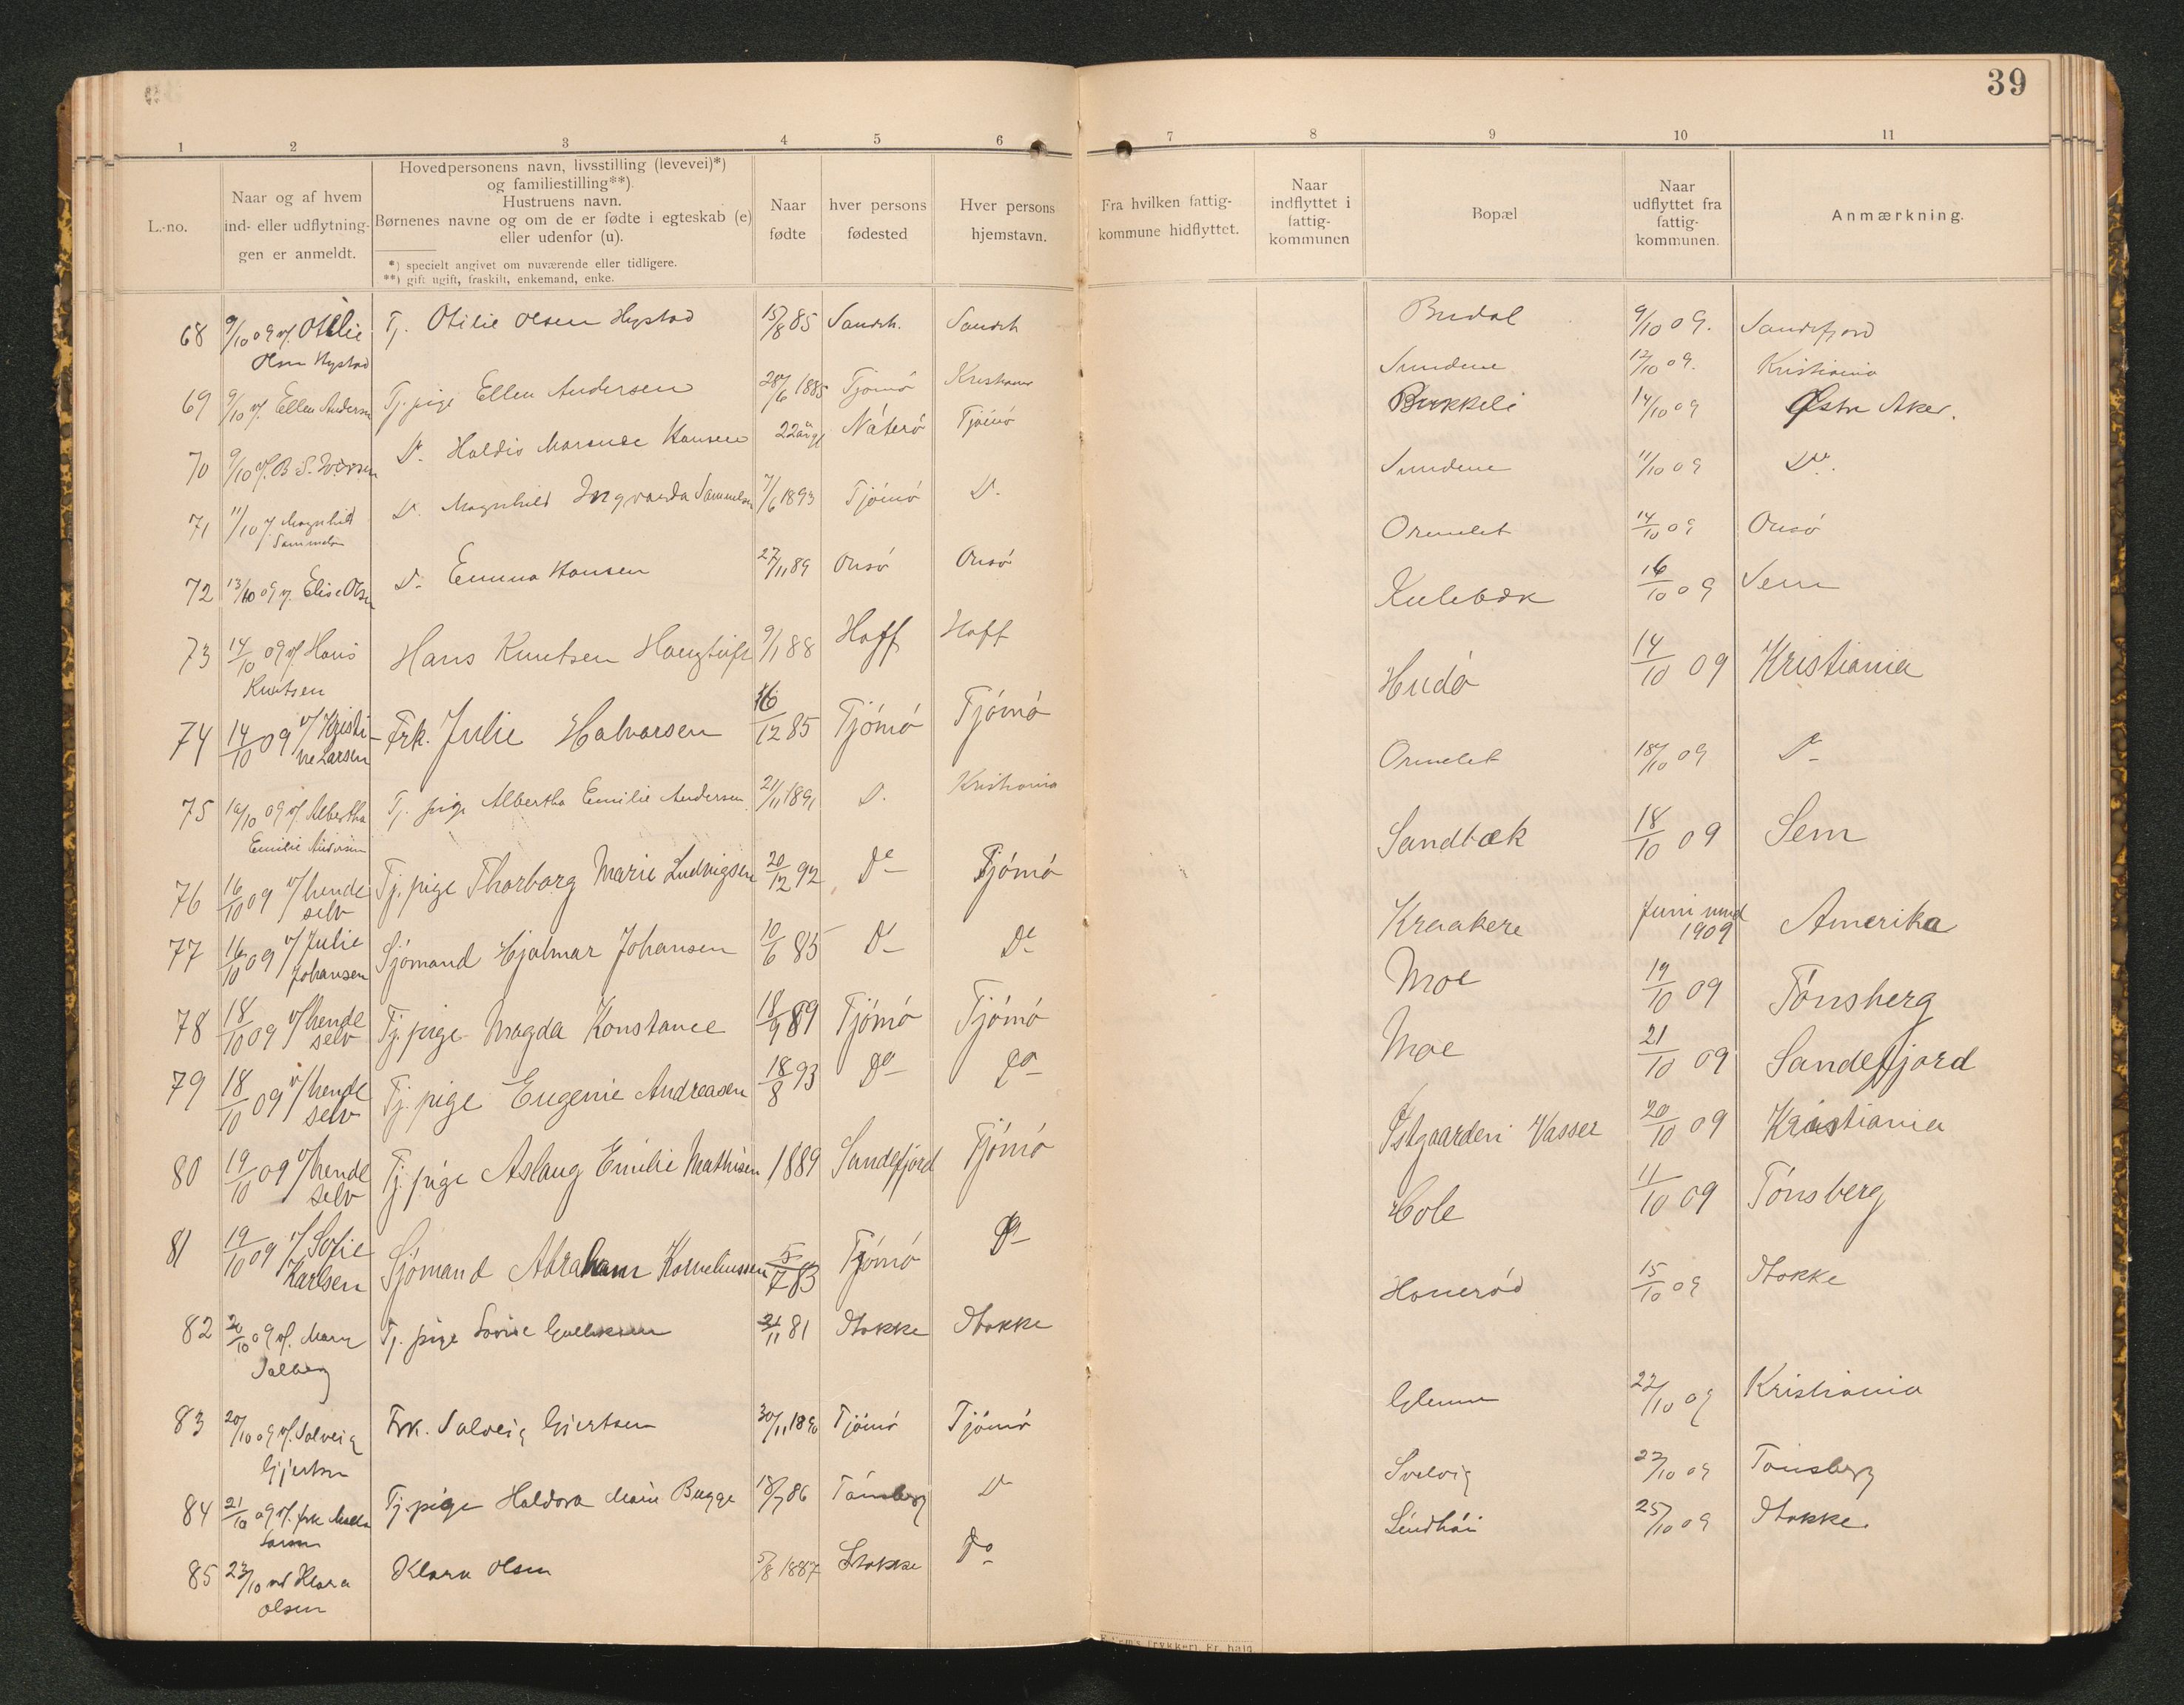 39
1 2 3 4 5 6 7 8 9 10 11
L.-no.
Naar og af hvem
ind- eller udflytning-
gen er anmeldt.
Hovedpersonens navn, livsstilling (levevei)*)
og familiestilling**).
Hustruens navn.
Børnenes navne og om de er fødte i egteskab (e)
eller udenfor (u).
*) specielt angivet om nuværende eller tidligere.
**) gift ugift, fraskilt, enkemand, enke.
Naar
fødte
hver persons
fødested
Hver persons
hjemstavn.
Fra hvilken fattig-
kommune hidflyttet.
Naar
indflyttet i
fattig-
kommunen
Bopæl
Naar
udflyttet fra
fattig-
kommunen.
Anmærkning.
68 9/10 09 v/. Otilie Tj. Otilie Olsen Hystad 15/8 85 Sandeh. Sandeh Budal 9/10 09. Sandefjord
Olsen Hystad
69 9/10 v/. Ellen Andersen Tj. pige Ellen Andersen 28/6 1885 Tjømø Kristiania Sundene 12/10 09. Kristiania
70 9/10 v/. B. S. Iversen Do. Haldis Marense Hansen 22 aar gl Nøterø Tjømø Bukkeli 14/10 09 Østre Aker.
71 11/10 v/. Magnhild Do. Magnhild Ingvarda Samuelsen 7/6 1893 Tjømø Do. Sundene 11/10 09 Do.
Samuelsen
72 13/10 09 v/. Elise Olsen Do. Emma Hansen 27/11 89 Onsø Onsø Ormelet 14/10 09 Onsø
73 14/10 09 v/. Hans Hans Knutsen Haugtuft 9/1 88 Hoff Hoff Kulebæk 16/10 09 Sem
Knutsen
74 14/10 09 v/ Kristi- Frk. Julie Halvorsen 16/12 85 Tjømø Tjømø Hudø 14/10 09 Kristiania
ne Larsen
75 16/10 09 v/. Albertha Tj. pige Albertha Emilie Andersen 21/11 1891 Do. Kristiania Ormelet 18/10 09 Do
Emilie Andersen
76 16/10 09 v/ hende Tj. pige Thorborg Marie Ludvigsen 20/12 92 Do Tjømø Sandbæk 18/10 09 Sem
selv
77 16/10 09 v/ Julie Sjømand Hjalmar Johansen 10/6 85 Do Do Kraakere Juni md 1909 Amerika
Johansen
78 18/10 09 v/ hende Tj. pige Magda Konstance 18/9 89 Tjømø Tjømø Moe 19/10 09 Tønsberg
selv
79 18/10 09 v/ hende Tj. pige Eugenie Andreasen 18/8 93 Do Do Moe 21/10 09 Sandefjord
selv
80 19/10 09 v/ hende Tj. pige Aslaug Emilie Mathisen 1889 Sandefjord Tjømø Østgaarden Vasser 20/10 09 Kristiania
selv
81 19/10 09 v/ Sofie Sjømand Abraham Korneliussen 5/7 83 Tjømø Do Hole 11/10 09 Tønsberg
Karlsen
82 20/10 09 v/. Marie Tj. pige Lovise 21/11 81 Stokke Stokke Honerød 15/10 09 Stokke
Solberg
83 20/10 09 v/. Solveig Frk. Solveig Gjertsen 30/11 1890 Tjømø Tjømø Glenne 22/10 09 Kristiania
Gjertsen
84 21/10 09 v/. frk Tj. pige Haldora Marie Bugge 18/7 86 Tønsberg Do Svelvig 23/10 09 Tønsberg
Larsen
85 23/10 ved Klara Klara Olsen 5/8 1887 Stokke Do Lindhøi 25/10 09 Stokke
Olsen